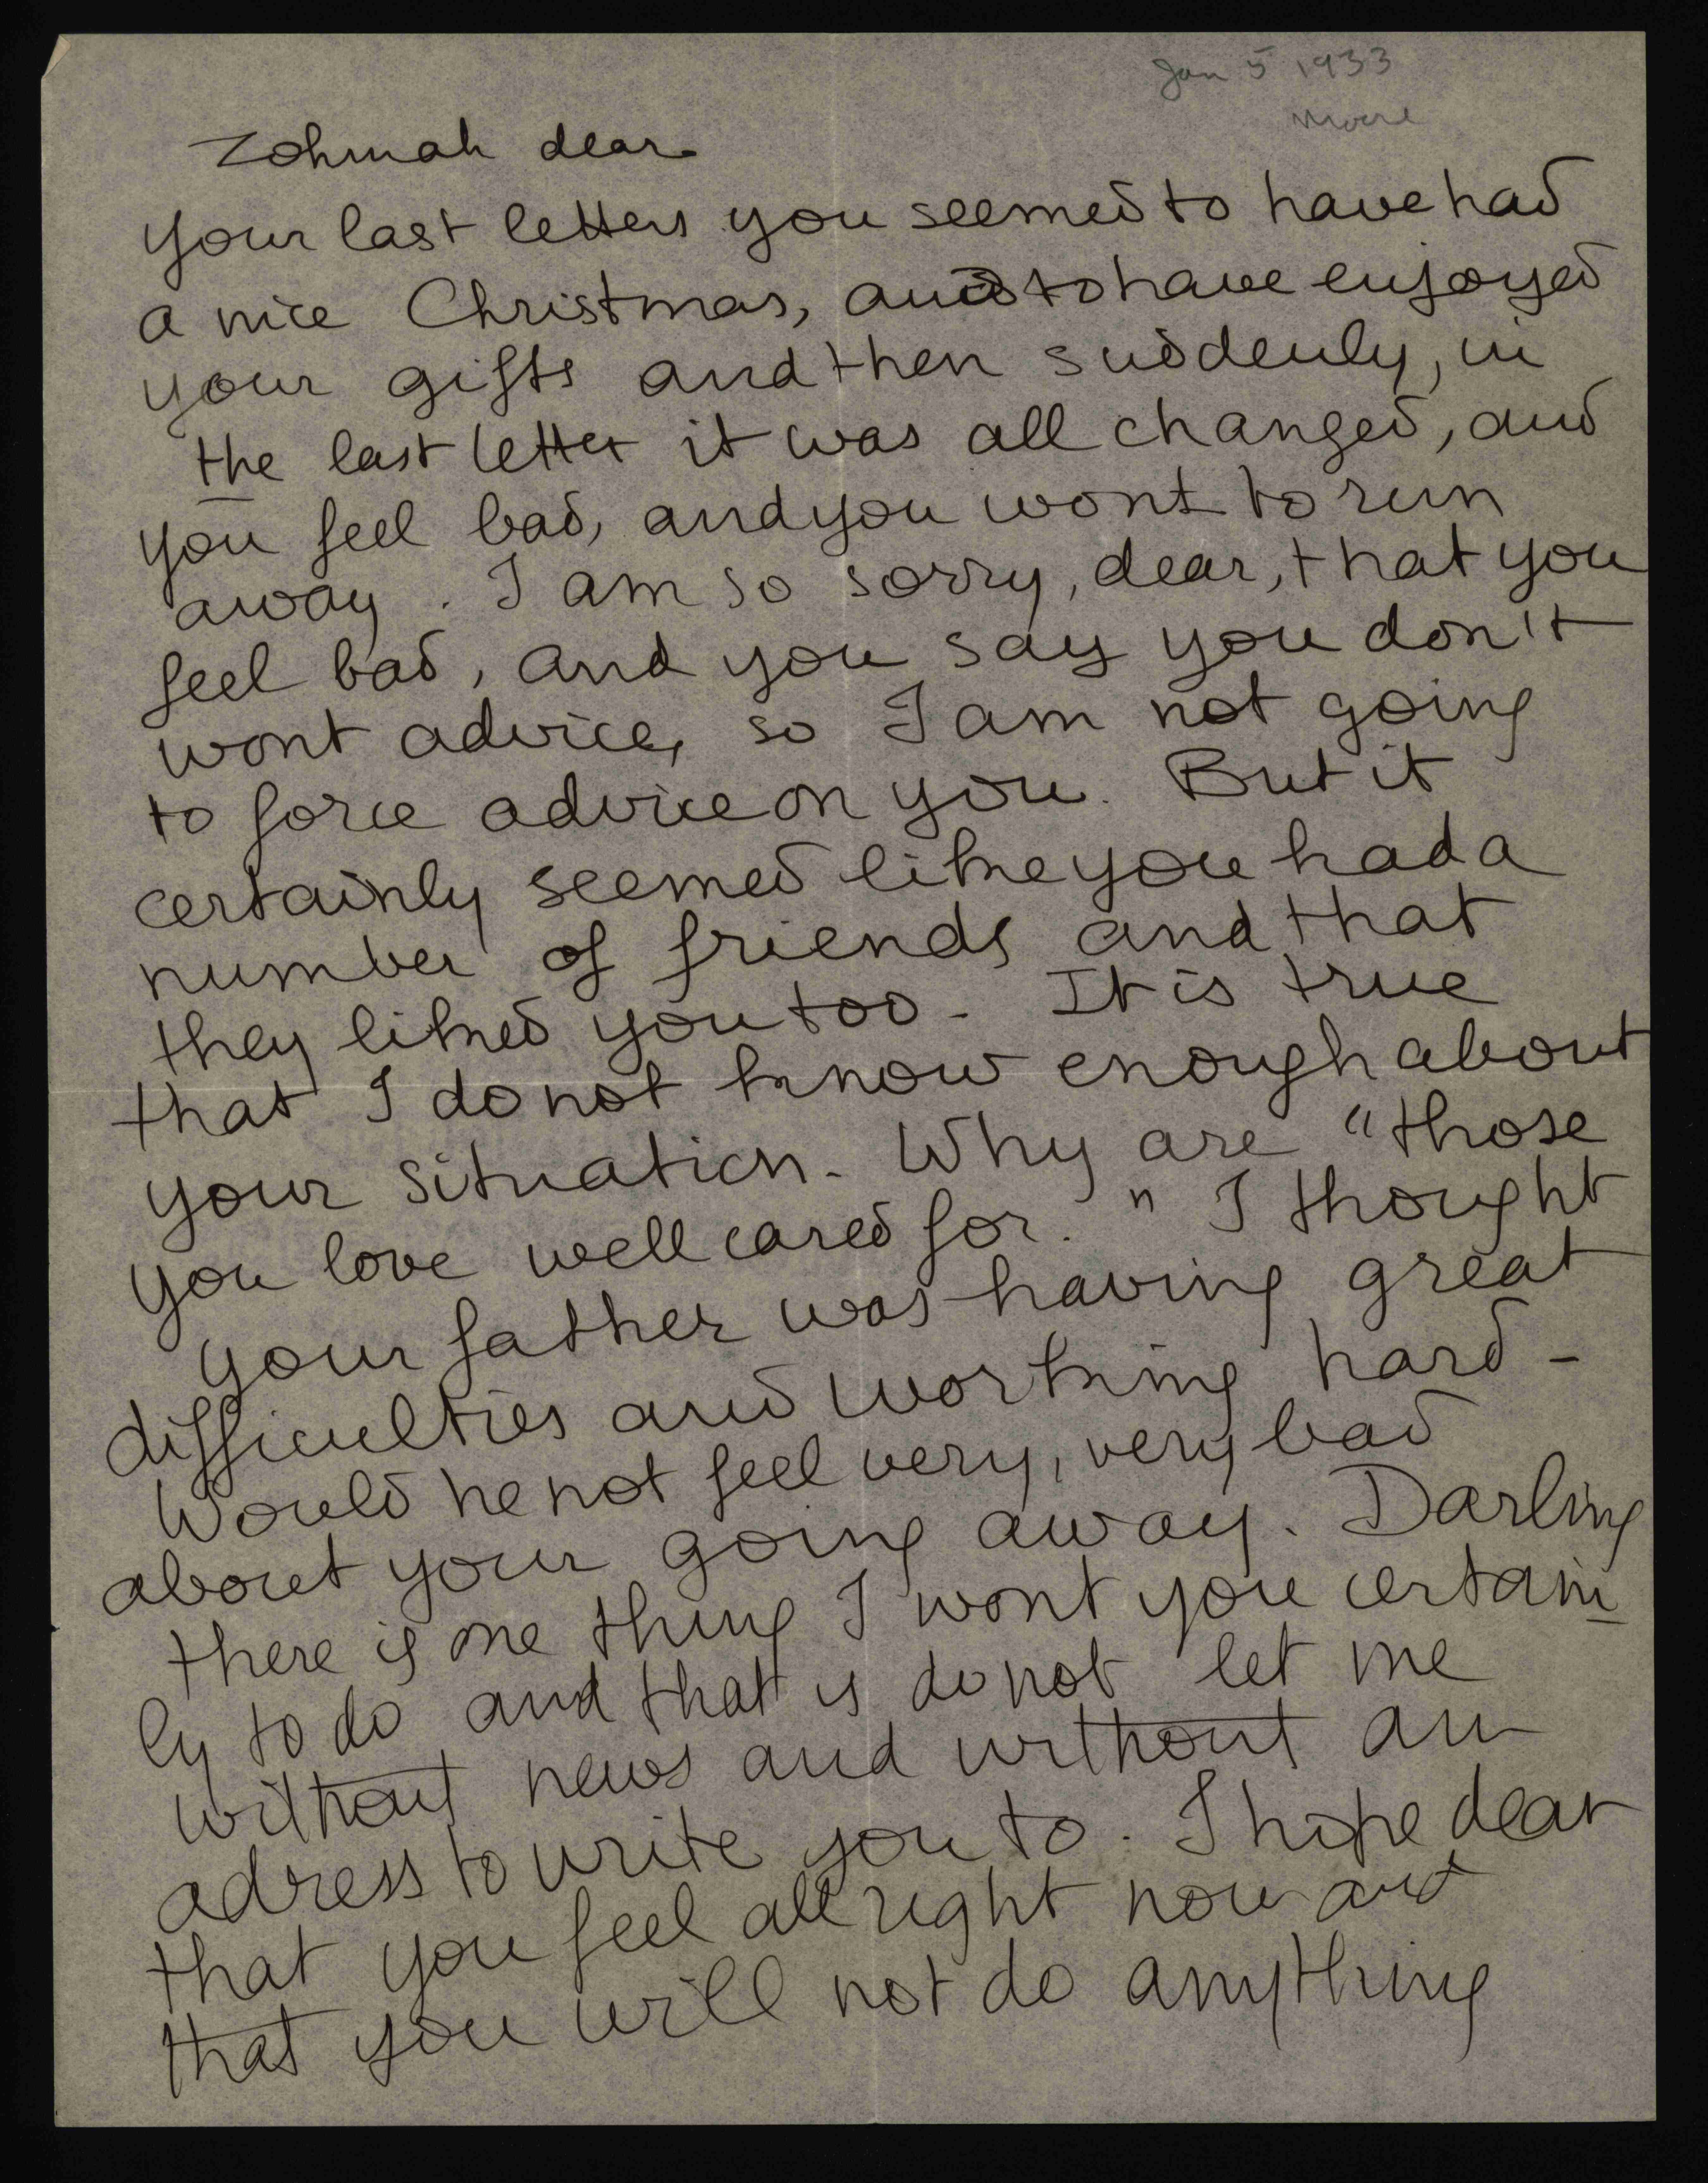 Jan 5 1933
Moore
Zohmah dear
your last letters you seemed to have had
a nice Christmas, and to have enjoyed
your gifts and then suddenly, in
the last letter it was all changed, and
you feel bad, and you wont to run
away. I am so sorry, dear, that you
feel bad, and you say you don't
wont advice, so I am not going
to force advice on you. But it
certainly seemed like you had a
number of friends and that
they liked you too - It is true
that I do not know enough about
your situation - Why are "those
you love well cared for." I thought
your father was having great
difficulties and working hard -
Would he not feel very, very bad
about your going away. Darling
there is one thing I wont you certain
ly to do and that is do not let me
without news and without an
adress to write you to. I hope dear
that you feel all right now and
that you will not do anything